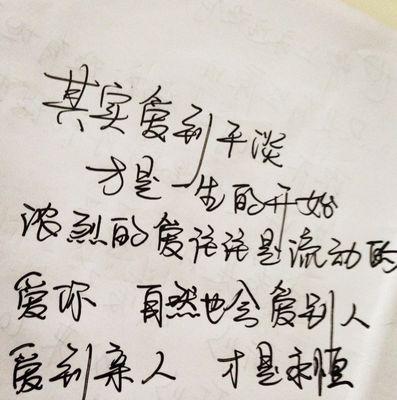 其实爱到平淡
才是一生的开始
浓烈的爱往往是流动的
爱你 自然也会爱别人
爱到亲人 才是永恒